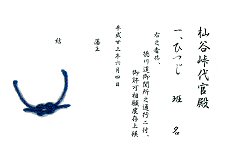 杣谷峠代官殿
一、ひつじ 班名
右之者共、
徳川道御関所之通行ニ付、
御許可相願度存上候
平成廿三年六月四日
謹上
結